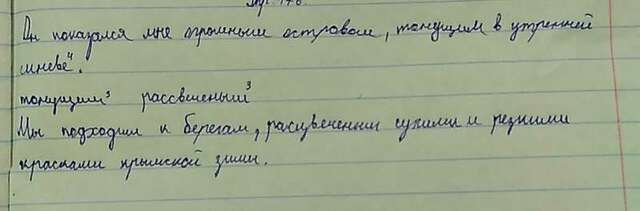 Он показался мне огромным островом, тонущим в утренней
мгве⁴.
тонущим³ рассвненый³
Мы подходим к берегам, расцвеченным сухими и резкими
красками крымской зимы.